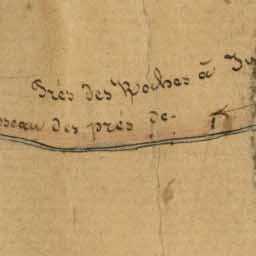 Prés des Roches à
sseau des prés de